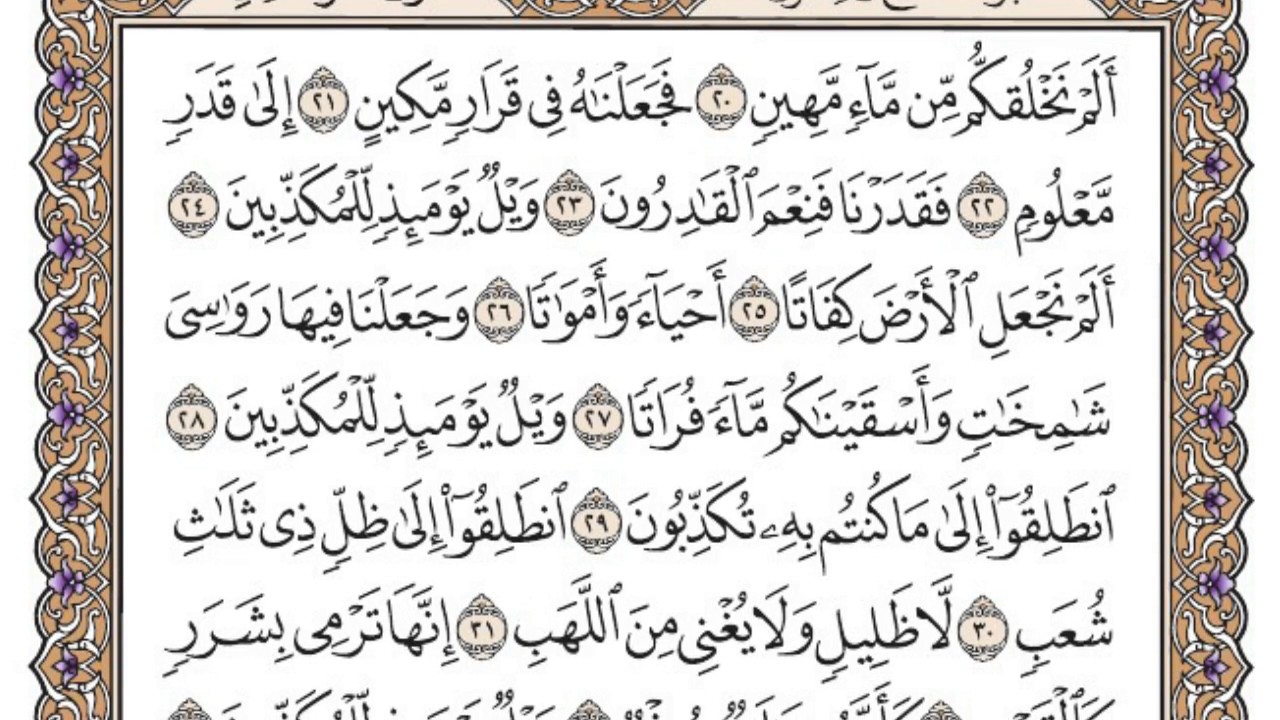 أَلَمْ نَخْلُقكُّم مِّن مَّآءٍ مَّهِينٍ ٢٠ فَجَعَلْنَٰهُ فِى قَرَارٍ مَّكِينٍ ٢١ إِلَىٰ قَدَرٍ
مَّعْلُومٍ ٢٢ فَقَدَرْنَا فَنِعْمَ ٱلْقَٰدِرُونَ ٢٣ وَيْلٌ يَوْمَئِذٍ لِّلْمُكَذِّبِينَ ٢٤
أَلَمْ نَجْعَلِ ٱلْأَرْضَ كِفَاتًا ٢٥ أَحْيَآءً وَأَمْوَٰتًا ٢٦ وَجَعَلْنَا فِيهَا رَوَٰسِىَ
شَٰمِخَٰتٍ وَأَسْقَيْنَٰكُم مَّآءً فُرَاتًا ٢٧ وَيْلٌ يَوْمَئِذٍ لِّلْمُكَذِّبِينَ ٢٨
ٱنطَلِقُوٓا۟ إِلَىٰ مَا كُنتُم بِهِۦ تُكَذِّبُونَ ٢٩ ٱنطَلِقُوٓا۟ إِلَىٰ ظِلٍّ ذِى ثَلَٰثِ
شُعَبٍ ٣٠ لَّا ظَلِيلٍ وَلَا يُغْنِى مِنَ ٱللَّهَبِ ٣١ إِنَّهَا تَرْمِى بِشَرَرٍ